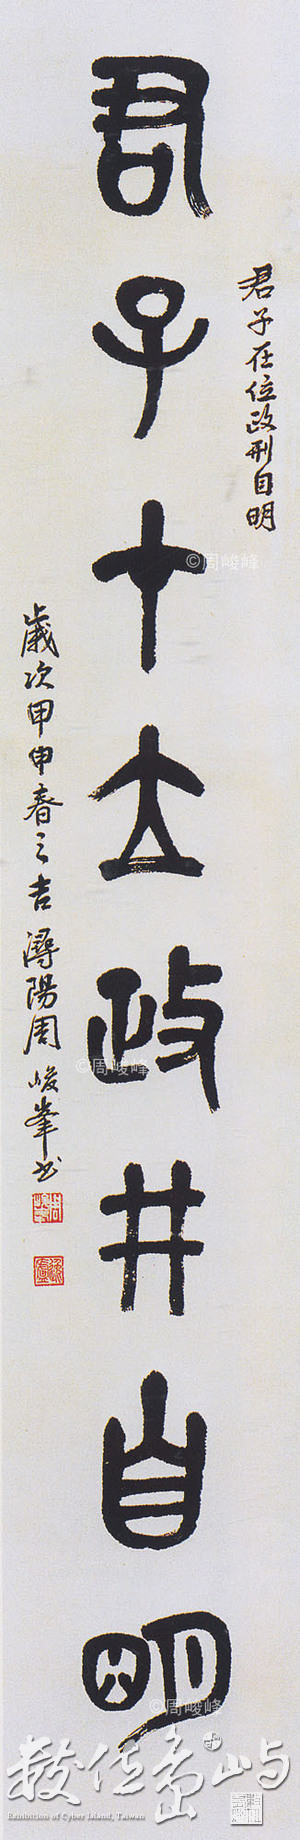 君子在位政刑自明
君子才立政井自明
歲次甲申春之吉潯陽周峻峯書
©周峻峰
©周峻峰
©周峻峰
數位島嶼
Exhibition of Cyber Island, Taiwan